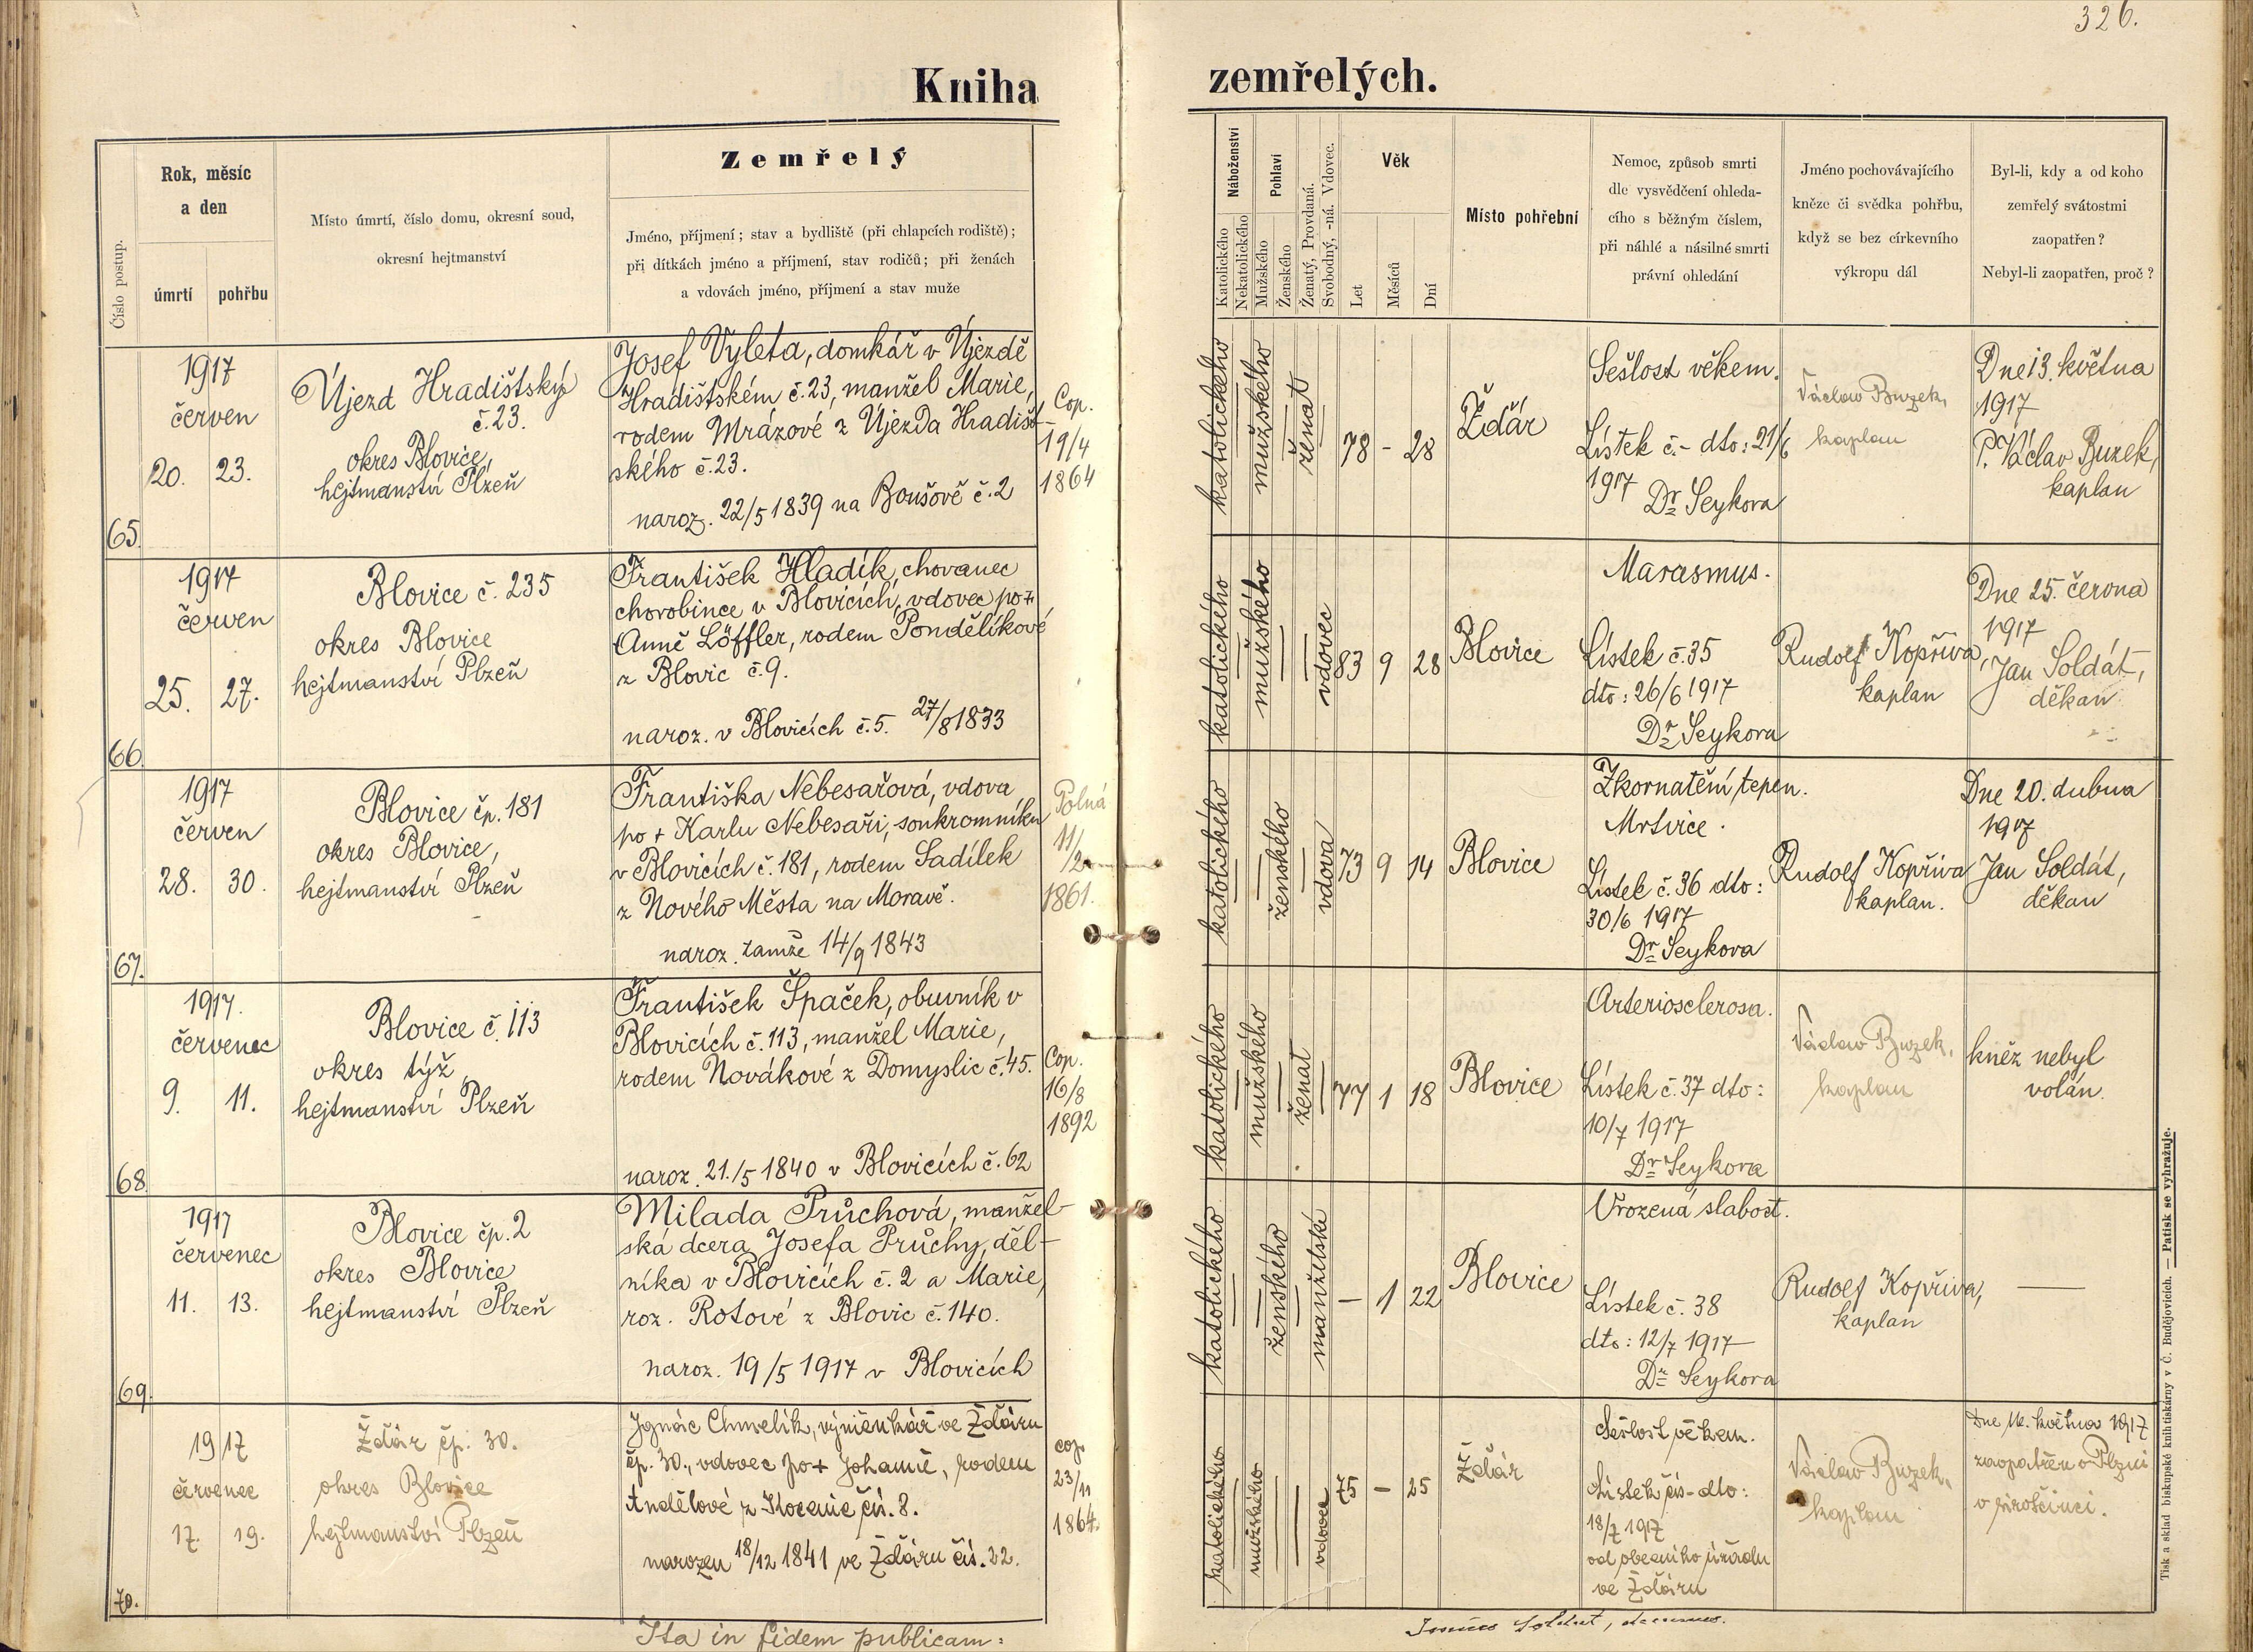 326.
Kniha zemřelých.
Číslo postup.
Rok, měsíc
a den
úmrtí
pohřbu
Místo úmrtí, číslo domu, okresní soud,
okresní hejtmanství
Zemřelý
Jméno, příjmení; stav a bydliště (při chlapcích rodiště);
při dítkách jméno a příjmení, stav rodičů; při ženách
a vdovách jméno, příjmení a stav muže
Náboženství
Katolického
Nekatolického
Pohlaví
Mužského
Ženského
Ženatý, Provdaná.
Svobodný, -ná. Vdovec.
Věk
Let
Měsíců
Dní
Místo pohřební
Nemoc, způsob smrti
dle vysvědčení ohleda-
cího s běžným číslem,
při náhlé a násilné smrti
právní ohledání
Jméno pochovávajícího
kněze či svědka pohřbu,
když se bez církevního
výkropu dál
Byl-li, kdy a od koho
zemřelý svátostmi
zaopatřen?
Nebyl-li zaopatřen, proč?
65.
1917
červen
20. 23.
Újezd Hradištský
č. 23.
okres Blovice,
hejtmanství Plzeň
Josef Vyleta, domkář v Újezdě
Hradištském č. 23, manžel Marie,
rodem Mrázové z Újezda Hradišt-
ského č. 23.
naroz. 22/5 1839 na Boušově č. 2
Cop.
19/4
1864
katolického
mužského
ženat
78 - 28
Ždár
Sešlost věkem.
Lístek č. - dto: 21/6
1917
Dr Seykora
Václav Buzek,
kaplan
Dne 13. května
1917
P. Václav Buzek,
kaplan
66.
1917
červen
25. 27.
Blovice č. 235
okres Blovice
hejtmanství Plzeň
František Hladík, chovanec
chorobince v Blovicích, vdovec po +
Anně Löffler, rodem Pondělíkové
z Blovic č. 9.
naroz. v Blovicích č. 5. 27/8 1833
katolického
mužského
vdovec
83 9 28
Blovice
Marasmus.
Lístek č. 35
dto: 26/6 1917
Dr Seykora
Rudolf Kopřiva,
kaplan
Dne 25. června
1917
Jan Soldát,
děkan
67.
1917
červen
28. 30.
Blovice čp. 181
okres Blovice,
hejtmanství Plzeň
Františka Nebesařová, vdova
po + Karlu Nebesaři, soukromníku
v Blovicích č. 181, rodem Sadílek
z Nového Města na Moravě.
naroz. tamže 14/9 1843
Polná
11/2
1861.
katolického
ženského
vdova
73 9 14
Blovice
Zkornatění tepen.
Mrtvice.
Lístek č. 36 dto:
30/6 1917
Dr Seykora
Rudolf Kopřiva
kaplan.
Dne 20. dubna
1917
Jan Soldát,
děkan
68.
1917.
červenec
9. 11.
Blovice č. 113
okres týž
hejtmanství Plzeň
František Špaček, obuvník v
Blovicích č. 113, manžel Marie,
rodem Novákové z Domyslic č. 45.
naroz. 21./5 1840 v Blovicích č. 62
Cop.
16/8
1892
katolického
mužského
ženat
77 1 18
Blovice
Arteriosclerosa.
Lístek č. 37 dto:
10/7 1917
Dr Seykora
Václav Buzek,
kaplan
kněz nebyl
volán.
69.
1917
červenec
11. 13.
Blovice čp. 2
okres Blovice
hejtmanství Plzeň
Milada Průchová, manžel-
ská dcera Josefa Průchy, děl-
níka v Blovicích č. 2 a Marie,
roz. Rotové z Blovic č. 140.
naroz. 19/5 1917 v Blovicích
katolického
ženského
manželská
- 1 22
Blovice
Vrozená slabost.
Lístek č. 38
dto: 12/7 1917
Dr Seykora
Rudolf Kopřiva,
kaplan
—
70.
1917
červenec
17. 19.
Ždár čp. 30.
okres Blovice
hejtmanství Plzeň
Ignác Chmelík, výměnkář ve Ždáru
čp. 30., vdovec po + Johanně, rodem
Andělové z čís. 8.
narozen 18/12 1841 ve Ždáru čís. 22.
cop.
23/11
1864.
katolického
mužského
vdovec
75 - 25
Ždár
Sešlost věkem.
Lístek čís - dto:
18/7 1917
od obecního úřadu
ve Ždáru
Václav Buzek,
kaplan
Dne 16. května 1917
zaopatřen v Plzni
v
Ita in fidem publicam:
Tisk a sklad biskupské knihtiskárny v Č. Budějovicích. — Patisk se vyhražuje.